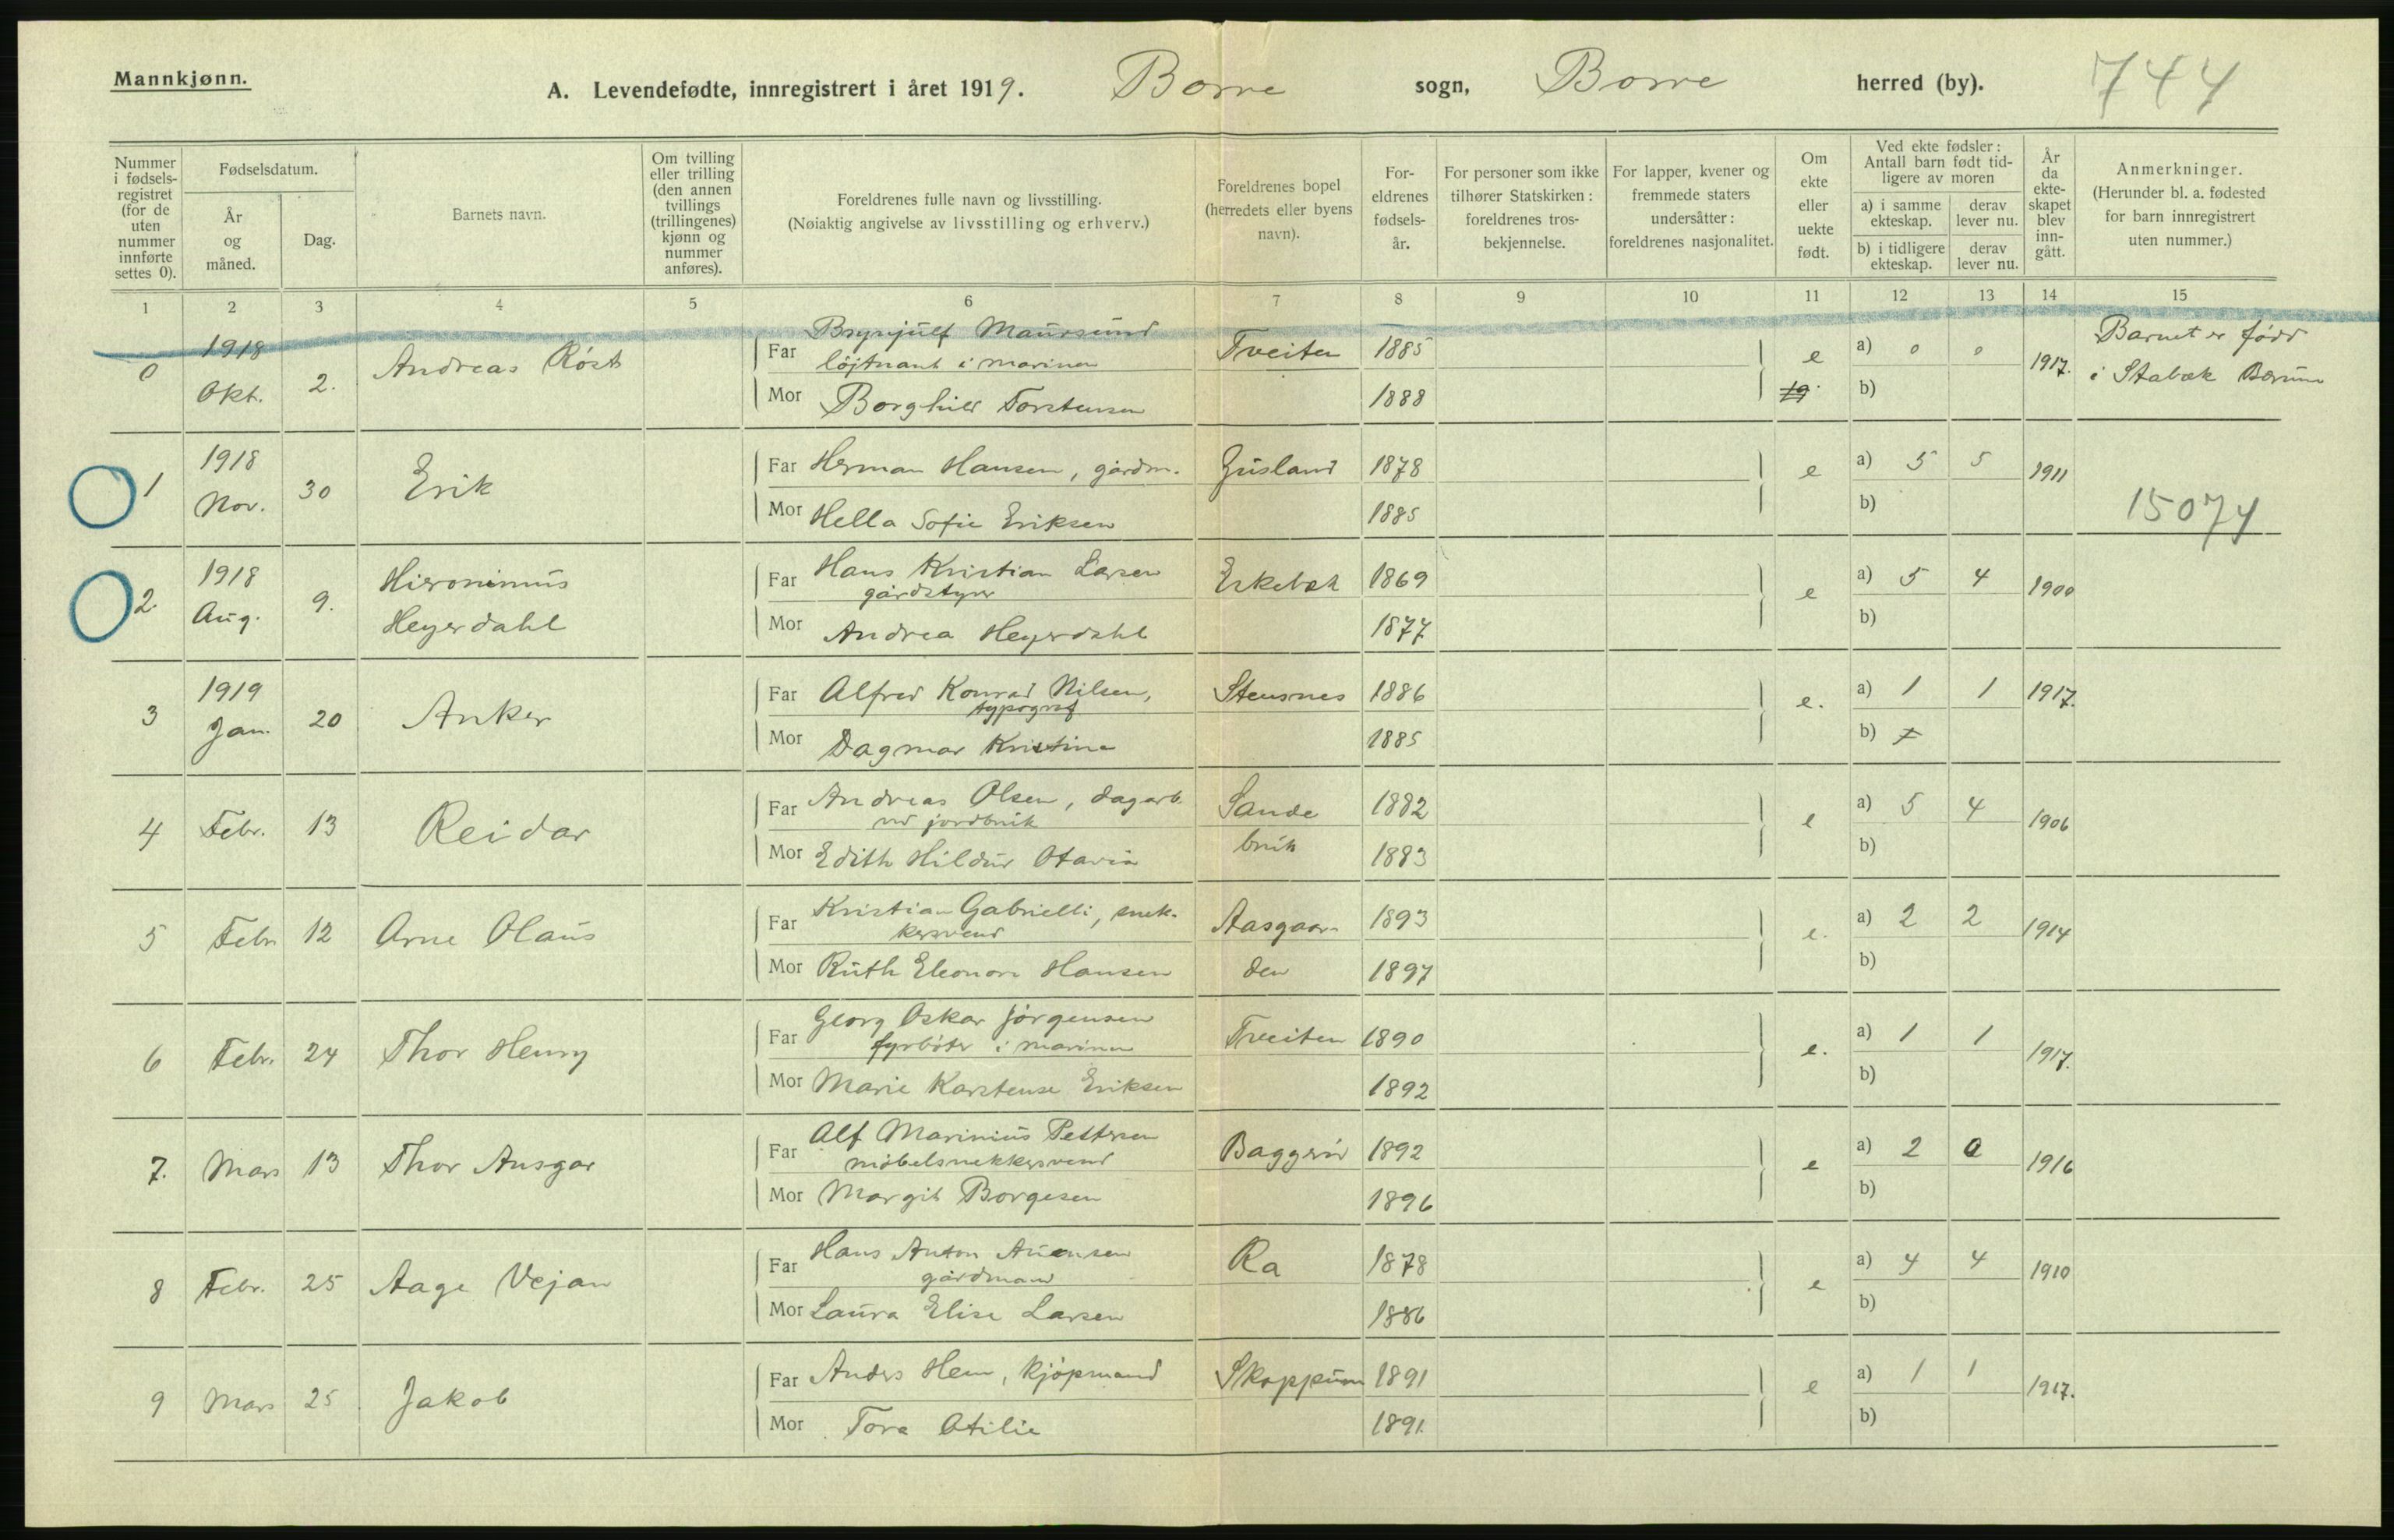 Mannkjønn.
A. Levendefødte, innregistrert i året 1919. Borre sogn, Borre herred (by). 744
Nummer i fødsels-registret (for de uten nummer innførte settes 0).
Fødselsdatum.
År og måned.
Dag.
Barnets navn.
Om tvilling eller trilling (den annen tvillings (trillingenes) kjønn og nummer anføres).
Foreldrenes fulle navn og livsstilling.
(Nøiaktig angivelse av livsstilling og erhverv.)
Foreldrenes bopel (herredets eller byens navn).
For-eldrenes fødsels-år.
For personer som ikke tilhører Statskirken: foreldrenes tros-bekjennelse.
For lapper, kvener og fremmede staters undersåtter: foreldrenes nasjonalitet.
Om ekte eller uekte født.
Ved ekte fødsler: Antall barn født tid-ligere av moren
a) i samme ekteskap.
derav lever nu.
b) i tidligere ekteskap.
derav lever nu.
År da ekte-skapet blev inn-gått.
Anmerkninger.
(Herunder bl. a. fødested for barn innregistrert uten nummer.)
1 2 3 4 5 6 7 8 9 10 11 12 13 14 15
0 1918 Okt. 2. Andreas Röst
Far Brynjulf Maursund
löjtnant i marinen Tveiten 1885 e a) 0 0 1917. Barnet er född
i Stabæk Bærum
Mor Borghild Torstensen 1888 19 b)
1 1918 Nov. 30 Erik
Far Herman Hansen, gårdm. Gusland 1878 e a) 5 5 1911
Mor Hella Sofie Eriksen 1885 b)
15074
2. 1918 Aug. 9. Hieronimus
Heyerdahl
Far Hans Kristian Larsen
gårdstyrer Erkebæk 1869 e a) 5 4 1900
Mor Andrea Heyerdahl 1877 b)
3 1919 Jan. 20 Anker
Far Alfred Konrad Nilsen,
typograf Stensnes 1886 e. a) 1 1 1917.
Mor Dagmar Kristine 1885 b)
4 Febr. 13 Reidar
Far Andreas Olsen, dagarb.
ved jordbruk Sande 1882 e a) 5 4 1906
Mor Edith Hildur Otavia bruk 1883 b)
5 Febr 12 Arne Olaus
Far Kristian Gabrielli, snek-
kersvend Aasgaar- 1893 e. a) 2 2 1914
Mor Ruth Eleonore Hansen den 1897 b)
6 Febr. 24 Thor Henry
Far Georg Oskar Jörgensen
fyrböter i marinen Tveiten 1890 e. a) 1 1 1917.
Mor Marie Karstense Eriksen 1892 b)
7. Mars 13 Thor Ansgar
Far Alf Marinius Pettersen
möbelsnekkersvend Baggeröd 1892 e a) 2 0 1916
Mor Margit Borgesen 1896 b)
8 Febr. 25 Aage Vejan
Far Hans Anton Auensen
gårdmand Ra 1878 e a) 4 4 1910
Mor Laura Elise Larsen 1886 b)
9 Mars 25 Jakob
Far Anders Hem, kjöpmand Skoppum 1891 e a) 1 1 1917.
Mor Tora Otilie 1891. b)